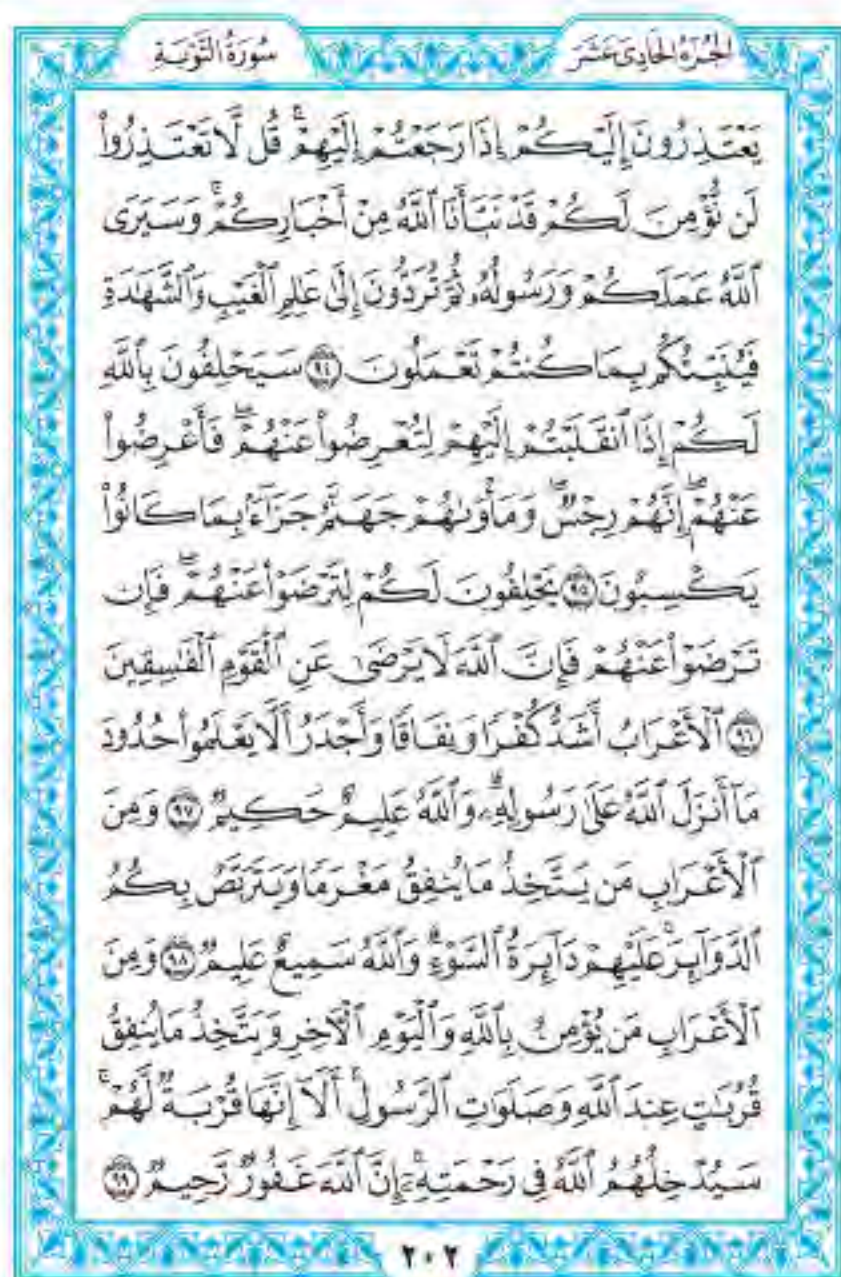 الجُزْءُ الحَادِىَ عَشَرَ
سُورَةُ التَّوْبَةِ
يَعْتَذِرُونَ إِلَيْكُمْ إِذَا رَجَعْتُمْ إِلَيْهِمْ ۚ قُل لَّا تَعْتَذِرُوا۟
لَن نُّؤْمِنَ لَكُمْ قَدْ نَبَّأَنَا ٱللَّهُ مِنْ أَخْبَارِكُمْ ۚ وَسَيَرَى
ٱللَّهُ عَمَلَكُمْ وَرَسُولُهُۥ ثُمَّ تُرَدُّونَ إِلَىٰ عَٰلِمِ ٱلْغَيْبِ وَٱلشَّهَٰدَةِ
فَيُنَبِّئُكُم بِمَا كُنتُمْ تَعْمَلُونَ ۝٩٤ سَيَحْلِفُونَ بِٱللَّهِ
لَكُمْ إِذَا ٱنقَلَبْتُمْ إِلَيْهِمْ لِتُعْرِضُوا۟ عَنْهُمْ ۖ فَأَعْرِضُوا۟
عَنْهُمْ ۖ إِنَّهُمْ رِجْسٌ ۖ وَمَأْوَىٰهُمْ جَهَنَّمُ جَزَآءًۢ بِمَا كَانُوا۟
يَكْسِبُونَ ۝٩٥ يَحْلِفُونَ لَكُمْ لِتَرْضَوْا۟ عَنْهُمْ ۖ فَإِن
تَرْضَوْا۟ عَنْهُمْ فَإِنَّ ٱللَّهَ لَا يَرْضَىٰ عَنِ ٱلْقَوْمِ ٱلْفَٰسِقِينَ
۝٩٦ ٱلْأَعْرَابُ أَشَدُّ كُفْرًا وَنِفَاقًا وَأَجْدَرُ أَلَّا يَعْلَمُوا۟ حُدُودَ
مَآ أَنزَلَ ٱللَّهُ عَلَىٰ رَسُولِهِۦ ۗ وَٱللَّهُ عَلِيمٌ حَكِيمٌ ۝٩٧ وَمِنَ
ٱلْأَعْرَابِ مَن يَتَّخِذُ مَا يُنفِقُ مَغْرَمًا وَيَتَرَبَّصُ بِكُمُ
ٱلدَّوَآئِرَ ۚ عَلَيْهِمْ دَآئِرَةُ ٱلسَّوْءِ ۗ وَٱللَّهُ سَمِيعٌ عَلِيمٌ ۝٩٨ وَمِنَ
ٱلْأَعْرَابِ مَن يُؤْمِنُ بِٱللَّهِ وَٱلْيَوْمِ ٱلْءَاخِرِ وَيَتَّخِذُ مَا يُنفِقُ
قُرُبَٰتٍ عِندَ ٱللَّهِ وَصَلَوَٰتِ ٱلرَّسُولِ ۚ أَلَآ إِنَّهَا قُرْبَةٌ لَّهُمْ ۚ
سَيُدْخِلُهُمُ ٱللَّهُ فِى رَحْمَتِهِۦٓ ۗ إِنَّ ٱللَّهَ غَفُورٌ رَّحِيمٌ ۝٩٩
٢٠٢